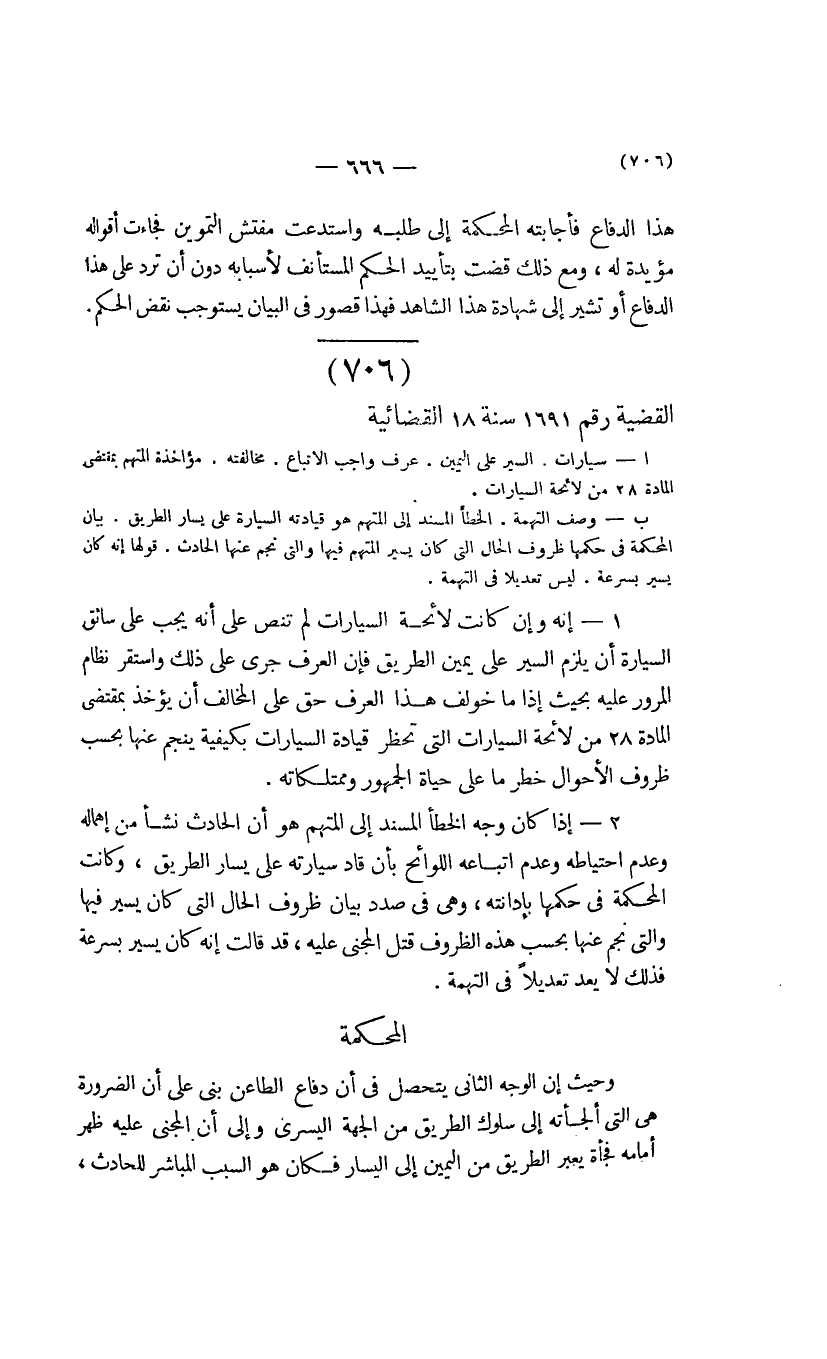 (٧٠٦)
— ٦٦٦ —
هذا الدفاع فأجابته المحكمة إلى طلبه واستدعت مفتش التموين فجاءت أقواله
مؤيدة له ، ومع ذلك قضت بتأييد الحكم المستأنف لأسبابه دون أن ترد على هذا
الدفاع أو تشير إلى شهادة هذا الشاهد فهذا قصور فى البيان يستوجب نقض الحكم .
(٧٠٦)
القضية رقم ١٦٩١ سنة ١٨ القضائية
ا — سيارات . السير على اليمين . عرف واجب الاتباع . مخالفته . مؤاخذة المتهم بمقتضى
المادة ٢٨ من لائحة السيارات .
ب — وصف التهمة . الخطأ المسند إلى المتهم هو قيادته السيارة على يسار الطريق . بيان
المحكمة فى حكمها ظروف الحال التى كان يسير المتهم فيها والتى نجم عنها الحادث . قولها إنه كان
يسير بسرعة . ليس تعديلا فى التهمة .
١ — إنه وإن كانت لائحة السيارات لم تنص على أنه يجب على سائق
السيارة أن يلزم السير على يمين الطريق فإن العرف جرى على ذلك واستقر نظام
المرور عليه بحيث إذا ما خولف هذا العرف حق على المخالف أن يؤخذ بمقتضى
المادة ٢٨ من لائحة السيارات التى تحظر قيادة السيارات بكيفية ينجم عنها بحسب
ظروف الأحوال خطر ما على حياة الجمهور وممتلكاته .
٢ — إذا كان وجه الخطأ المسند إلى المتهم هو أن الحادث نشأ من إهماله
وعدم احتياطه وعدم اتباعه اللوائح بأن قاد سيارته على يسار الطريق ، وكانت
المحكمة فى حكمها بإدانته ، وهى فى صدد بيان ظروف الحال التى كان يسير فيها
والتى نجم عنها بحسب هذه الظروف قتل المجنى عليه ، قد قالت إنه كان يسير بسرعة
فذلك لا يعد تعديلاً فى التهمة .
المحكمة
وحيث إن الوجه الثانى يتحصل فى أن دفاع الطاعن بنى على أن الضرورة
هى التى ألجأته إلى سلوك الطريق من الجهة اليسرى وإلى أن المجنى عليه ظهر
أمامه فجأة يعبر الطريق من اليمين إلى اليسار فكان هو السبب المباشر للحادث ،